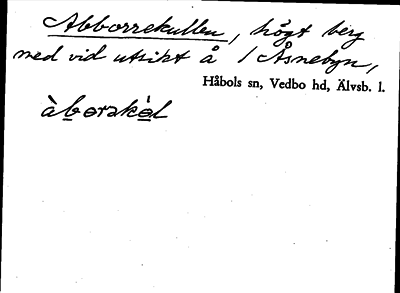 Abborrekullen, högt berg
med vid utsikt å 1 Åsnebyn,
Håbols sn, Vedbo hd, Älvsb. l.
àbɵrəkɵ̀l